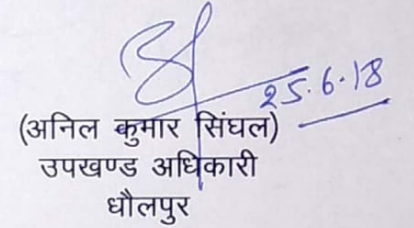 25.6.18
(अनिल कुमार सिंघल)
उपखण्ड अधिकारी
धौलपुर